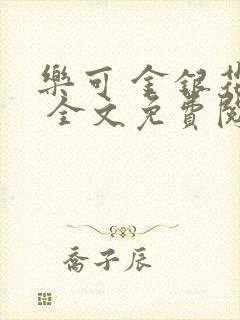 樂可 金銀花
全文免費閱
喬子辰